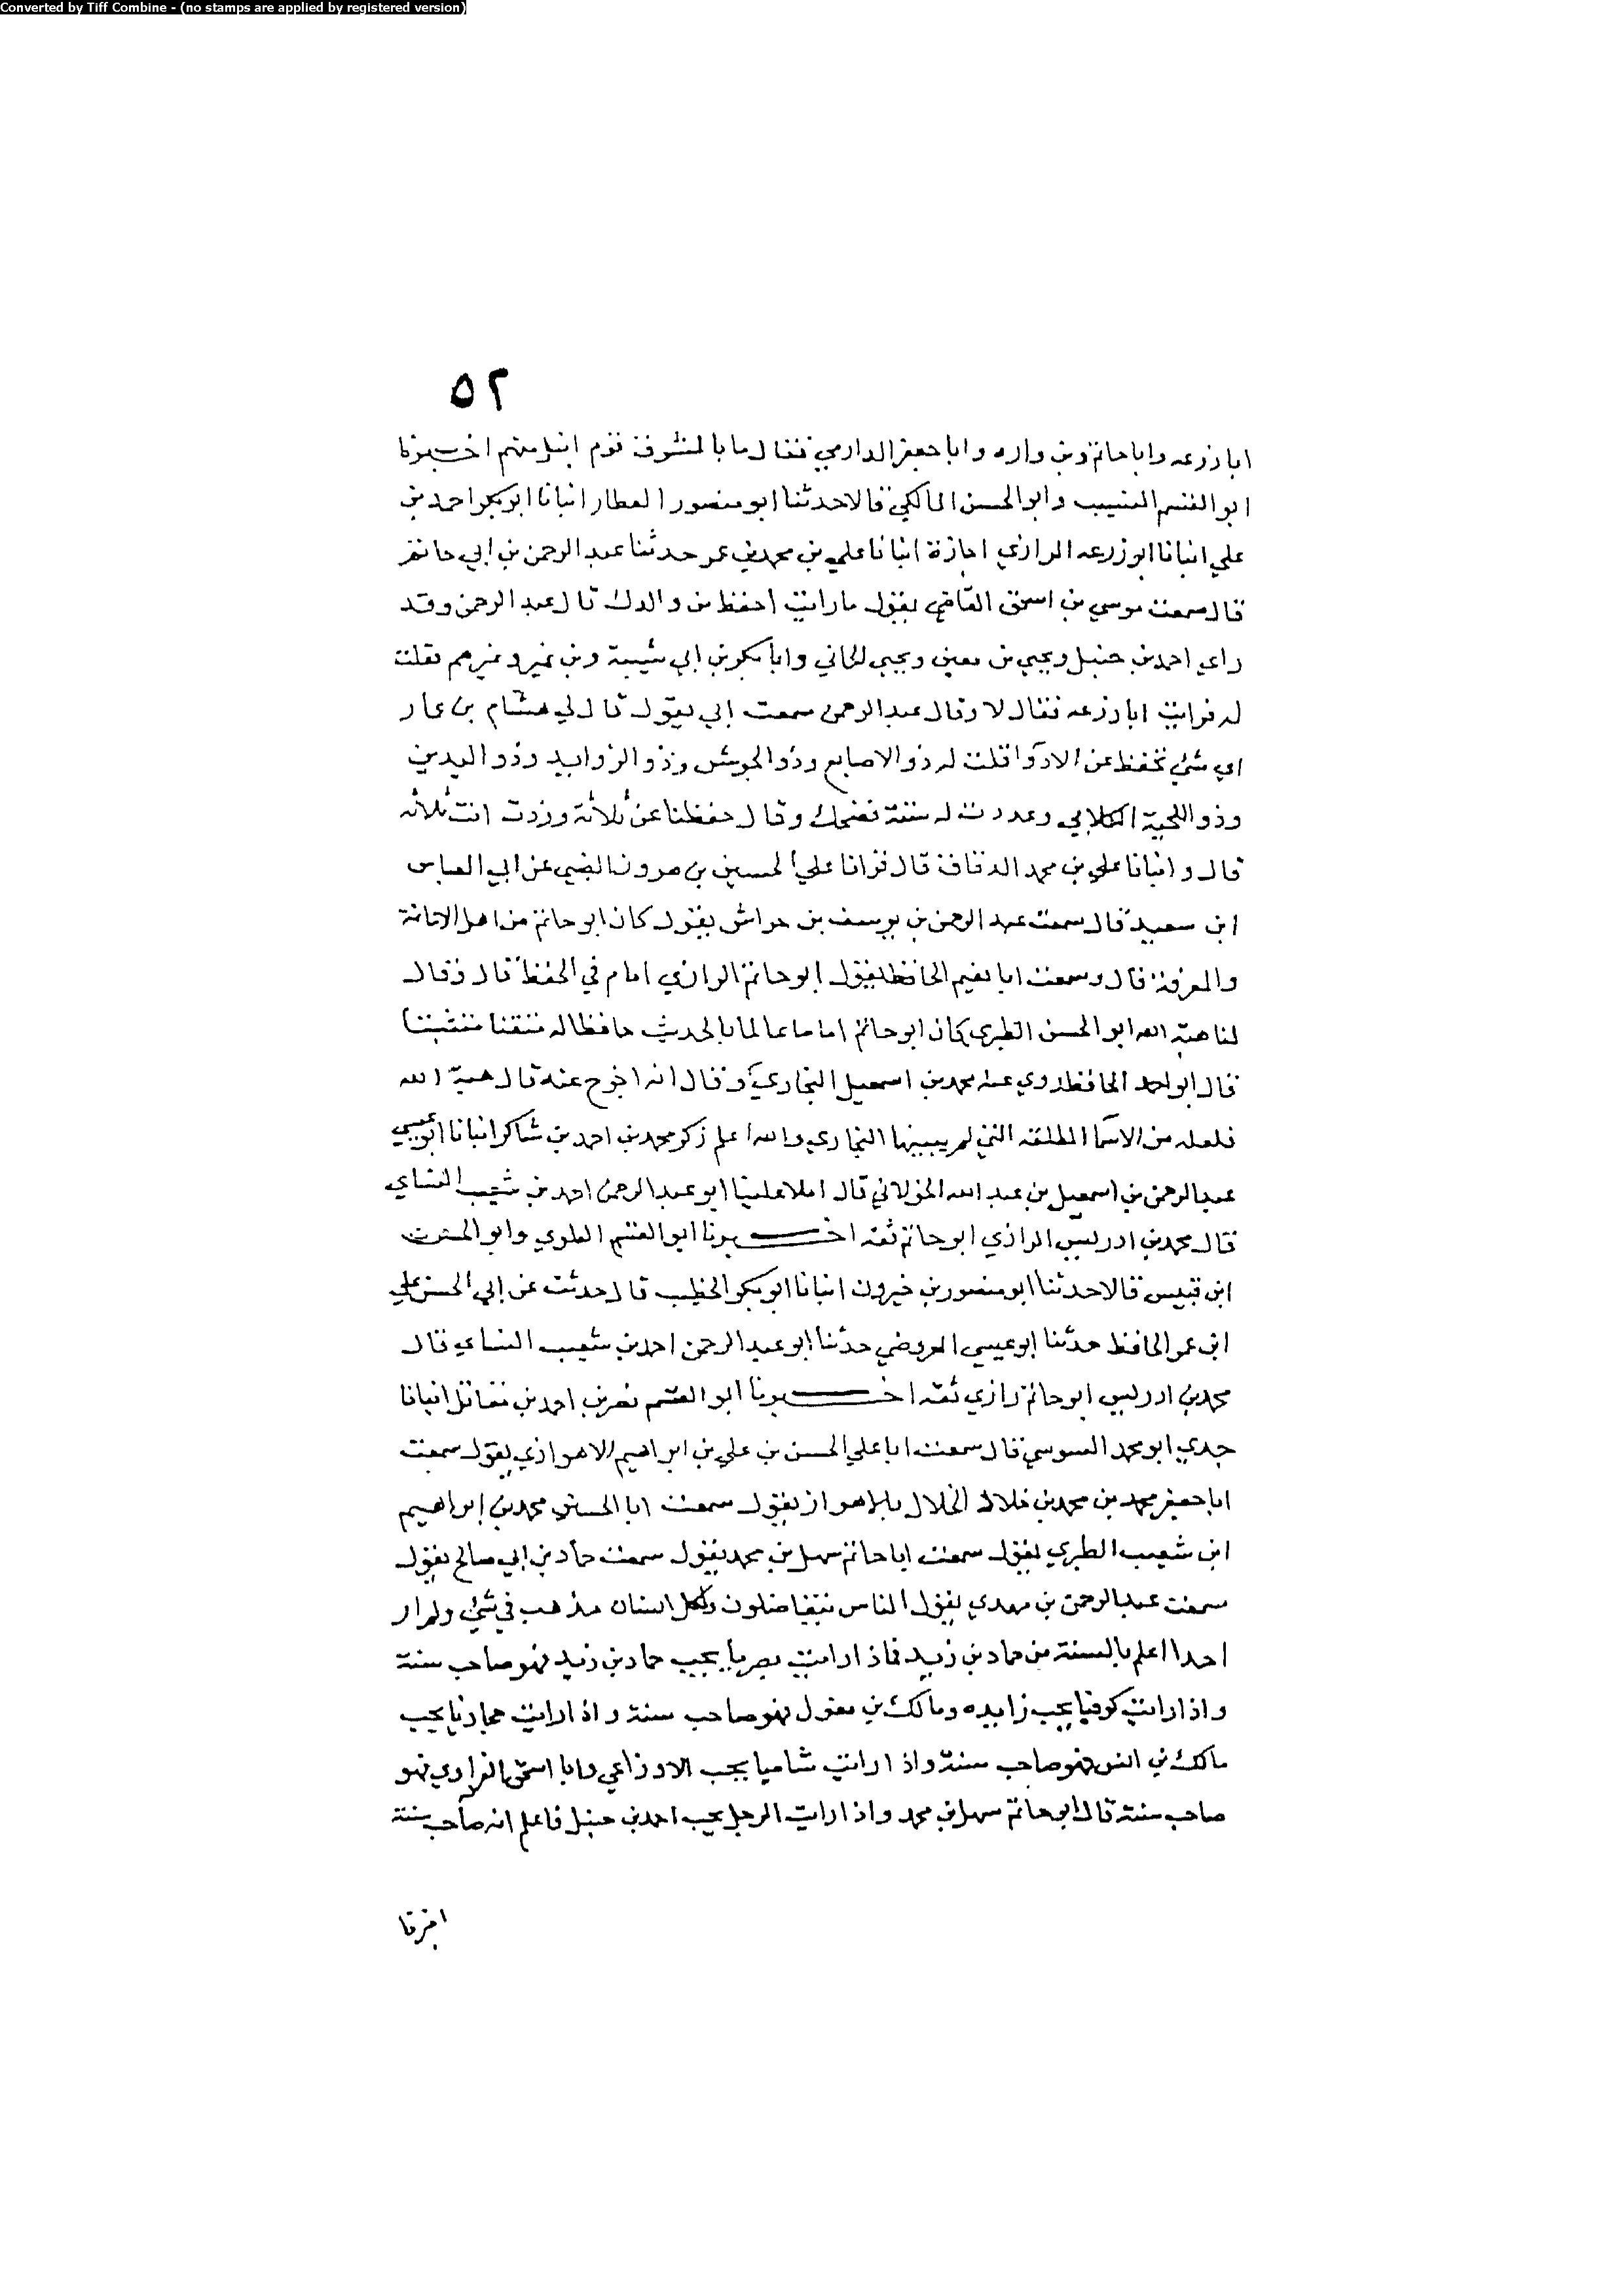 Converted by Tiff Combine - (no stamps are applied by registered version)
٥٢
ابا زرعه وابا حاتم وبن واره وابا جعفر الدارمي فقال ما بالمشرق قوم انبل منهم اخـــبرنا
ابو القسم النسيب وابو الحسن المالكي قالا حدثنا ابو منصور العطار انبانا ابو بكر احمد بن
علي انبانا ابو زرعه الرازي اجازة انبانا علي بن محمد بن عمر حدثنا عبد الرحمن بن ابي حاتم
قال سمعت موسي بن اسحق القاضي يقول ما رايت احفظ من والدك قال عبد الرحمن وقد
راي احمد بن حنبل ويحيي بن معين ويحيي الحماني وابا بكر بن ابي شيبة وبن نمير وغيرهم فقلت
له فرايت ابا زرعه فقال لا وقال عبد الرحمن سمعت ابي يقول قال لي هشام بن عمار
اي شئ تحفظ عن الاذوا قلت له ذو الاصابع وذو الجوشن وذو الزوايد وذو اليدين
وذو اللحية الكلابي وعددت له ستة فضحك وقال حفظنا عن ثلاثة وزدت انت ثلاثه
قال وانبانا علي بن محمد الدقاق قال قرانا علي الحسين بن هرون الضبي عن ابي العباس
ابن سعيد قال سمعت عبد الرحمن بن يوسف بن خراش يقول كان ابو حاتم من اهل الامانة
والمعرفة قال وسمعت ابا نعيم الحافظ يقول ابو حاتم الرازي امام في الحفظ قال وقال
لنا هبة الله ابو الحسن الطبري كان ابو حاتم اماما عالما بالحديث حافظا له متقنا متثبتا
قال ابو احمد الحافظ روي عنه محمد بن اسمعيل البخاري وقال انه اخرج عنه قال هبة الله
فلعله من الاسما المطلقه التي لم يبينها البخاري والله اعلم ذكر محمد بن احمد بن شاكر انبانا ابو عيسي
عبد الرحمن بن اسمعيل بن عبد الله الخولاني قال املا علينا ابو عبد الرحمن احمد بن شعيب النساي
قال محمد بن ادريس الرازي ابو حاتم ثقه اخـــبرنا ابو القسم العلوي وابو الحسن
ابن قبيس قالا حدثنا ابو منصور بن خيرون انبانا ابو بكر الخطيب قال حدثت عن ابي الحسن علي
ابن عمر الحافظ حدثنا ابو عيسي العروضي حدثنا ابو عبد الرحمن احمد بن شعيب النساي قال
محمد بن ادريس ابو حاتم رازي ثقه اخـــبرنا ابو القسم نصر بن احمد بن مقاتل انبانا
جدي ابو محمد السوسي قال سمعت ابا علي الحسن بن علي بن ابراهيم الاهوازي يقول سمعت
ابا جعفر محمد بن محمد بن خلاد الخلال بالاهواز يقول سمعت ابا الحسين محمد بن ابراهيم
ابن شعيب الطبري يقول سمعت ابا حاتم سهل بن محمد يقول سمعت حماد بن ابي صالح يقول
سمعت عبد الرحمن بن مهدي يقول الناس يتفاضلون ولكل انسان مذهب في شئ ولم ار
احدا اعلم بالسنة من حماد بن زيد فاذا رايت بصريا يحب حماد بن زيد فهو صاحب سنة
واذا رايت كوفيا يحب زايده ومالك بن مغول فهو صاحب سنة واذا رايت حجازيا يحب
مالك بن انس فهو صاحب سنة واذا رايت شاميا يحب الاوزاعي وابا اسحق الفزاري فهو
صاحب سنة قال ابو حاتم سهل بن محمد واذا رايت الرجل يحب احمد بن حنبل فاعلم انه صاحب سنة
اخبرنا